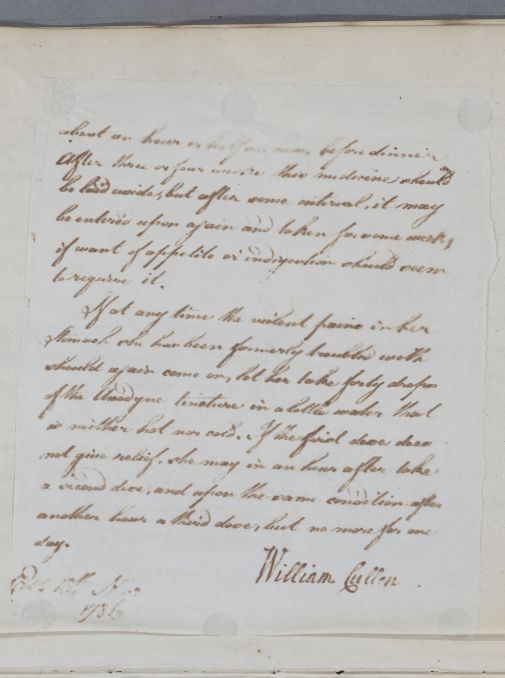 about an hour or half an hour before dinner
After three or four weeks this medicine should
be laid aside, but after some interval, it may
be entered upon again and taken for some weeks,
if want of appetite or indigestion should seem
to require it.
If at any time the violent pains in her
Stomach she has been formerly troubled with
should again come on, let her take forty drops
of the Anodyne tincture in a little water that
is neither hot nor cold. If the first dose does
not give relief, she may in an hour after take
a second dose, and upon the same condition after
another hour a third dose, but no more for one
day.
William Cullen